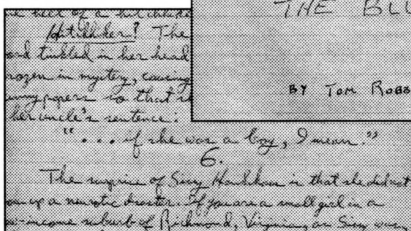 THE BLU
BY TOM ROBB
of a hitchhike
Hitchhiker? The
and tinkled in her head
rozen in mystery, causing
unny papers so that s
her uncle's sentence:
"... if she was a boy, I mean."
6.
The surprise of Sissy Hankshaw is that she did not
ow up a neurotic disaster. If you are a small girl in a
w-income suburb of Richmond, Virginia, as Sissy was